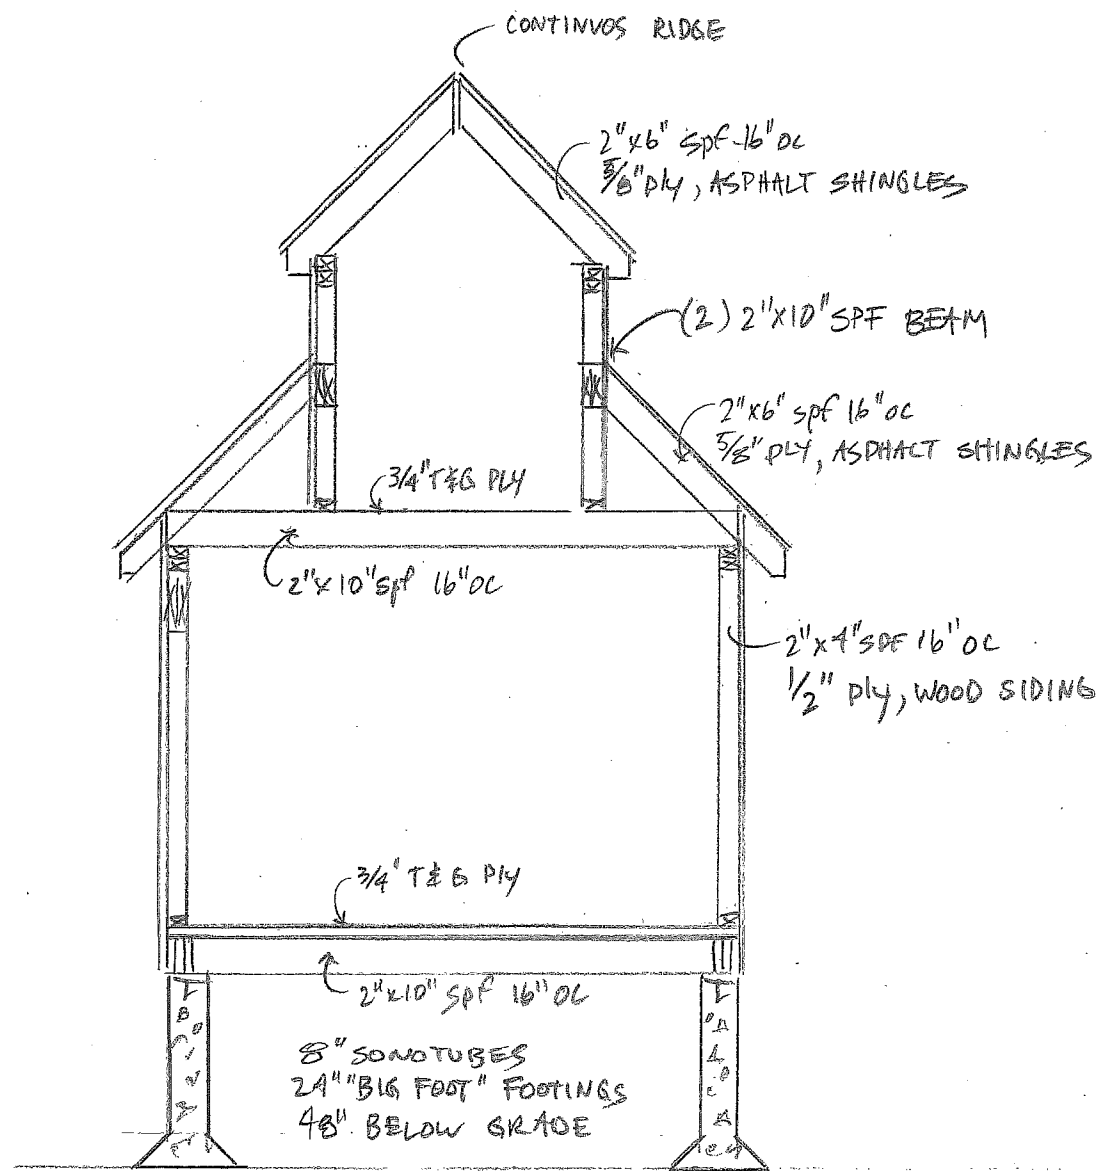 CONTINUOS RIDGE
2"x6" spf-16"oc
5/8" ply, ASPHALT SHINGLES
(2) 2"x10" SPF BEAM
2"x6" spf 16"oc
5/8" PLY, ASPHALT SHINGLES
3/4" T&G PLY
2"x10" spf 16"oc
2"x4" SPF 16"oc
1/2" ply, WOOD SIDING
3/4' T&G PLY
2"x10" spf 16"oc
8" SONOTUBES
24" "BIG FOOT" FOOTINGS
48" BELOW GRADE